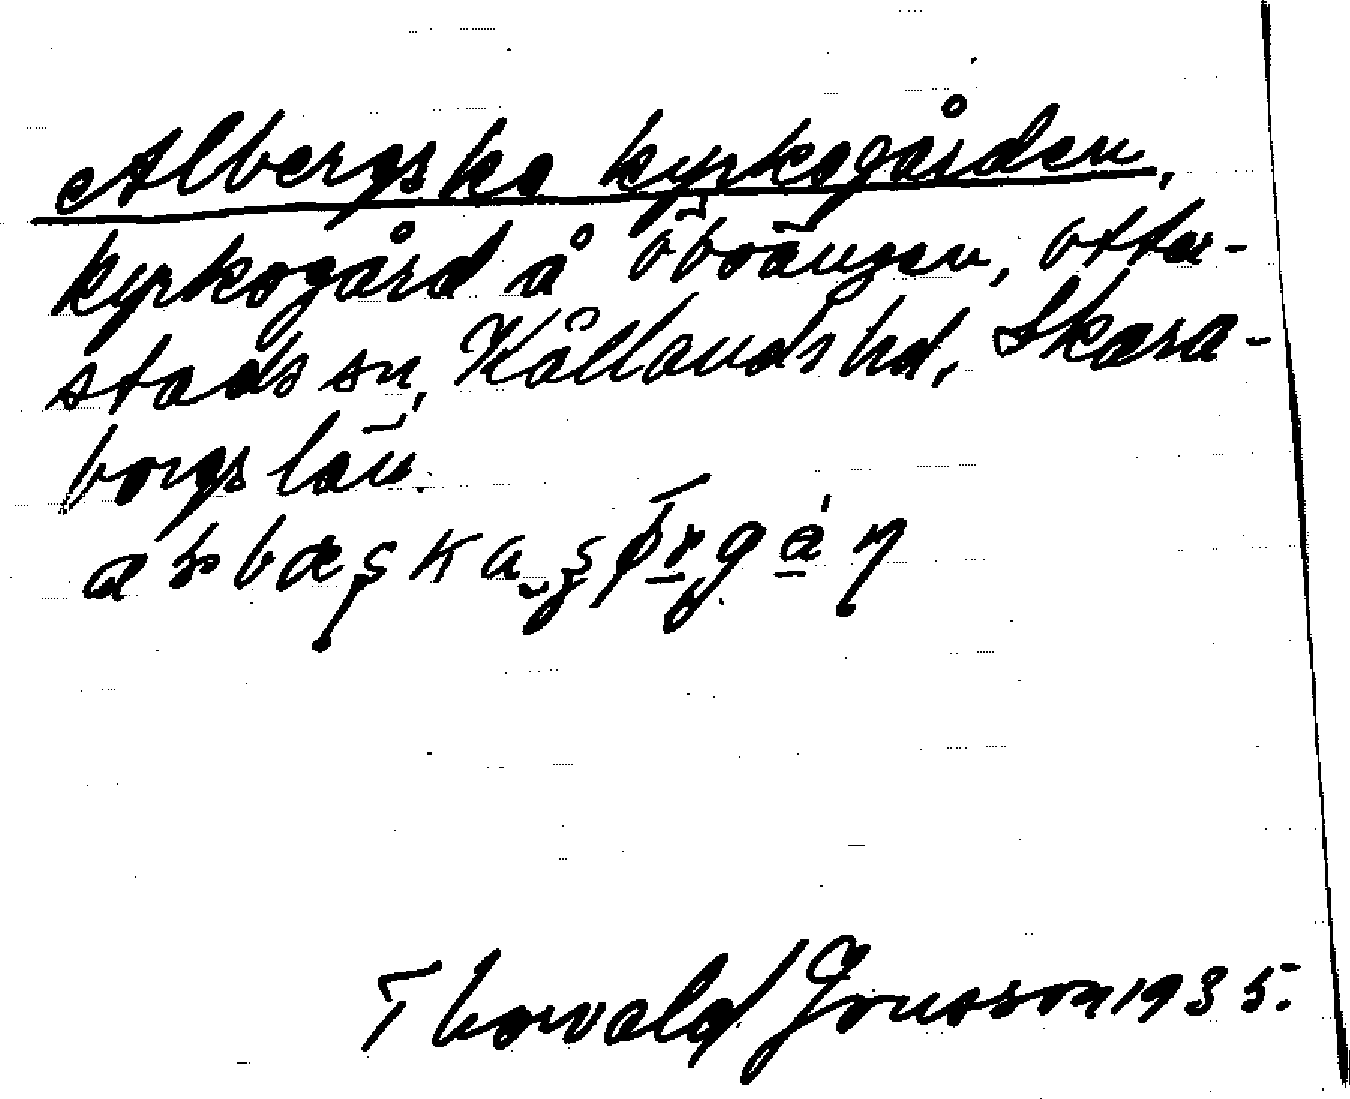 Albergska kyrkogården,
kyrkogård å öboängen, Otta-
stads sn, Kållands hd, Skara-
borgs län.
Thorvald Jonsson 1935.